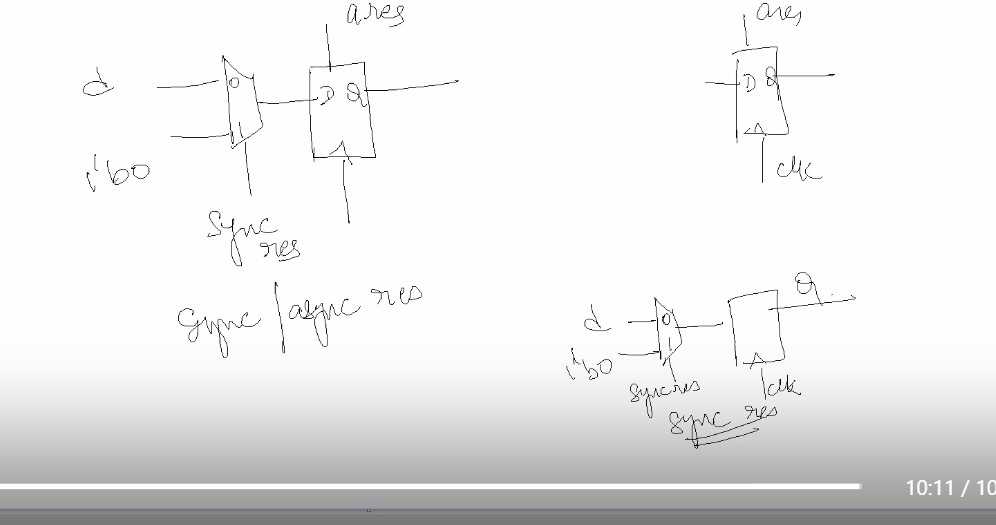 ares
d
0
D Q
1
1'b0
sync
res
sync / async res
ares
D Q
clk
d
0
1'b0
1
Q
sync res
clk
sync res
10:11 / 10